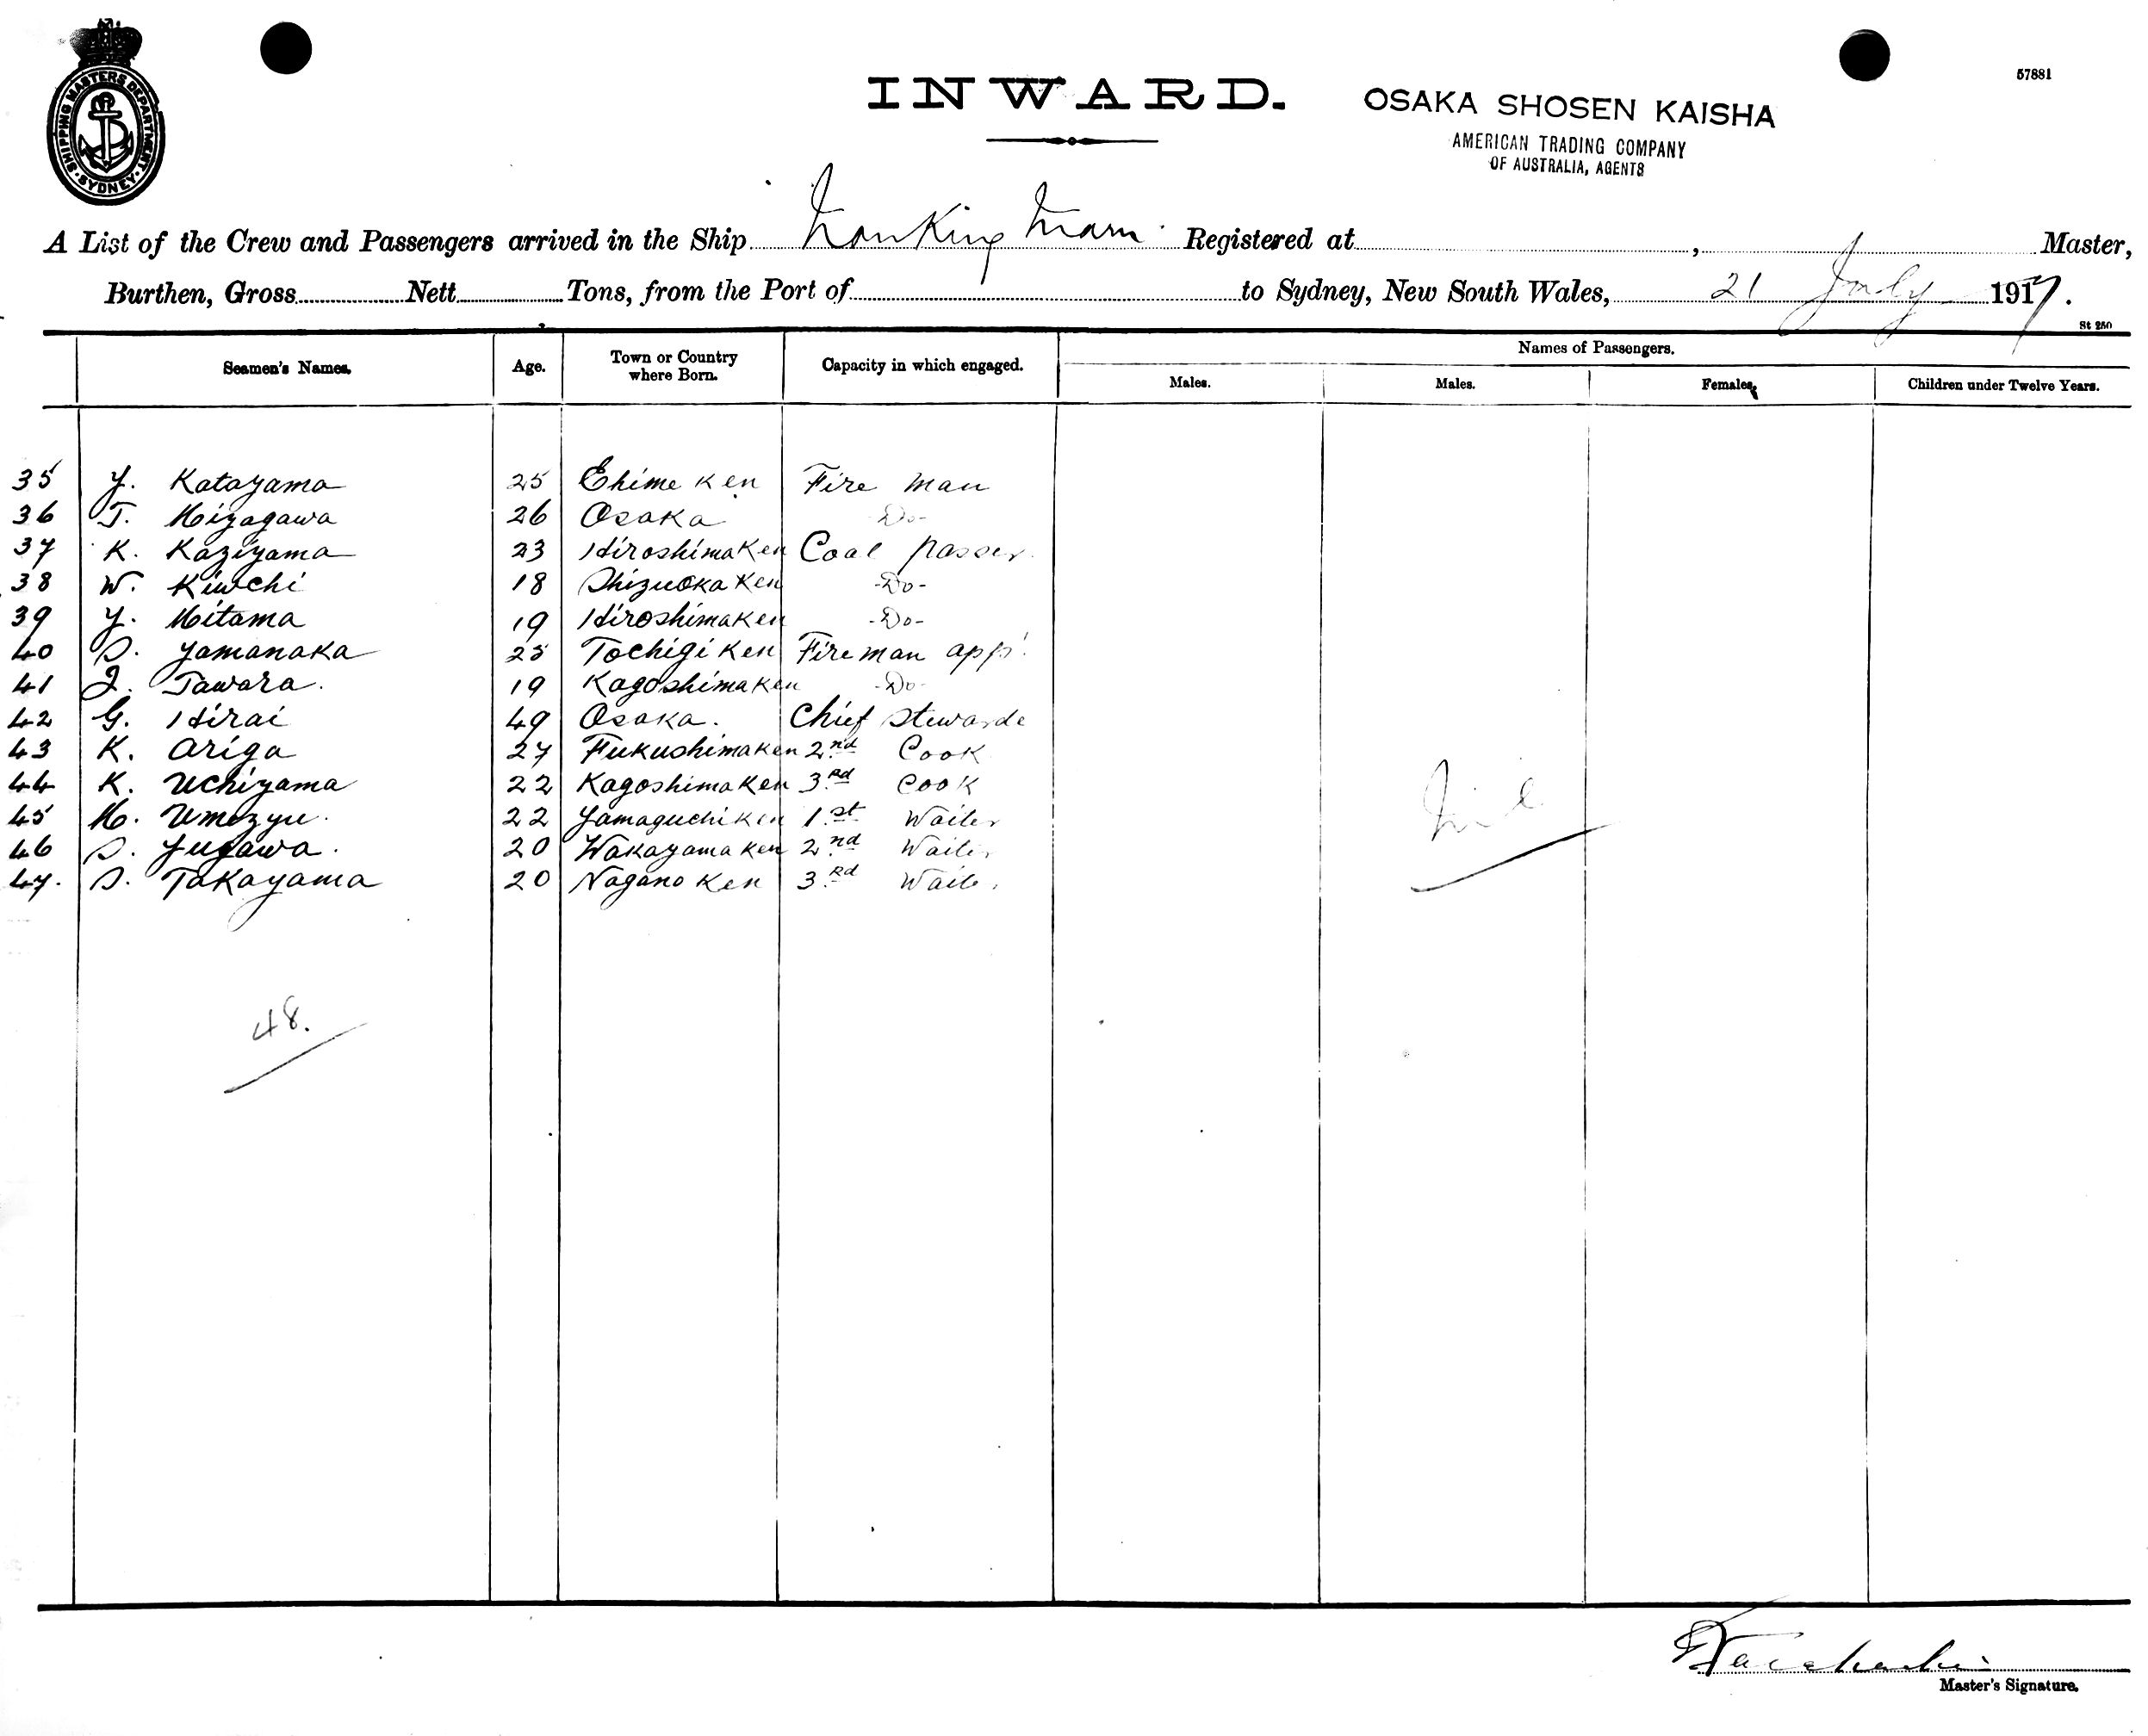 SHIPPING MASTERS DEPARTMENT · SYDNEY ·
INWARD.
57881
OSAKA SHOSEN KAISHA
AMERICAN TRADING COMPANY
OF AUSTRALIA, AGENTS
A List of the Crew and Passengers arrived in the Ship Nanking Maru Registered at , Master,
Burthen, Gross Nett Tons, from the Port of to Sydney, New South Wales, 21 July 1917.
St 250
Seamen's Names. Age. Town or Country where Born. Capacity in which engaged. Names of Passengers.
Males. Males. Females. Children under Twelve Years.
35 Y. Katayama 25 Ehime Ken Fire man
36 T. Miyagawa 26 Osaka -Do-
37 K. Kaziyama 23 Hiroshima Ken Coal passer
38 W. Kiuchi 18 Shizuoka Ken -Do-
39 Y. Mitama 19 Hiroshima Ken -Do-
40 S. Yamanaka 25 Tochigi Ken Fire man app'
41 J. Tawara. 19 Kagoshima Ken -Do-
42 G. Hirai 49 Osaka. Chief Stewarde
43 K. Ariga 27 Fukushima Ken 2nd Cook
44 K. Uchiyama 22 Kagoshima Ken 3rd Cook
45 M. Umezyu. 22 Yamaguchi Ken 1st Waiter
46 S. Yugawa. 20 Wakayama Ken 2nd Waiter
47. S. Takayama 20 Nagano Ken 3rd Waiter
Nil
48.
Master's Signature.